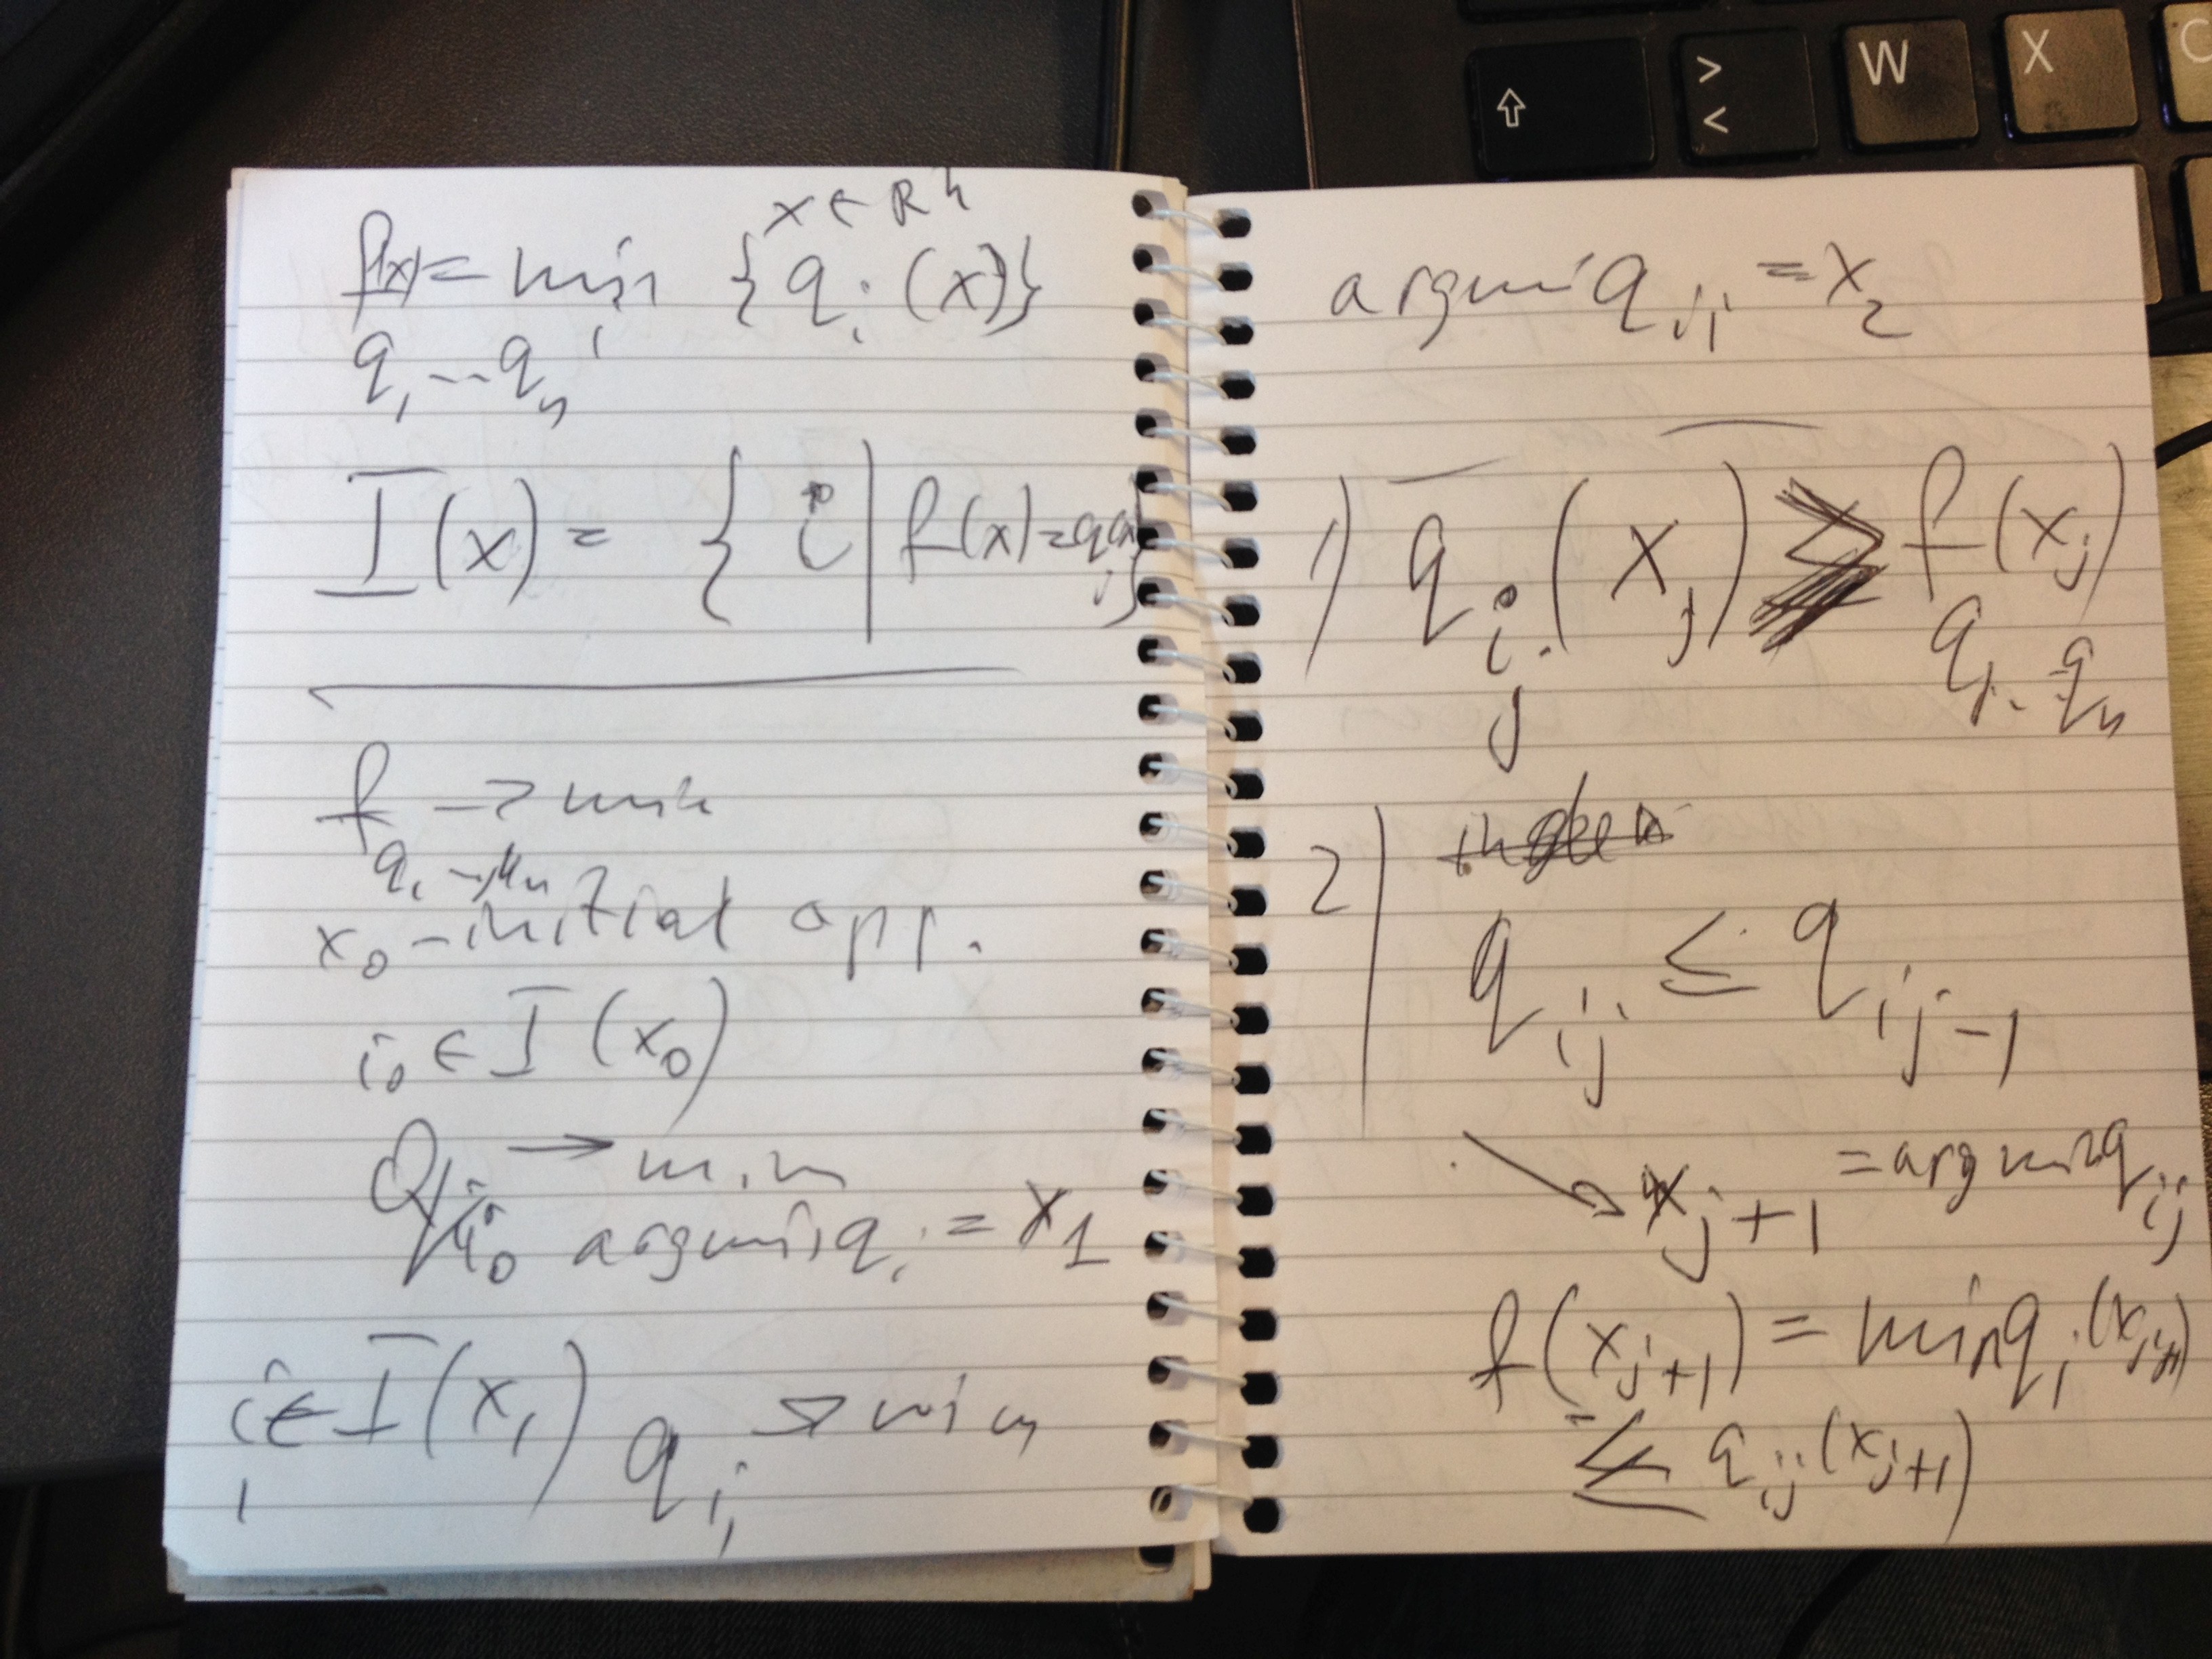 x ∈ R^n
f(x) = min_i {q_i(x)}
q_1 ... q_n
I(x) = { i | f(x) = q_i(x) }
f → min
q_1
x_0 - initial app.
i_0 ∈ I(x_0)
q_{i_0} → min
argmin q_i = x_1
i_1 ∈ I(x_1) q_{i_1} → min
argmin q_{i_1} = x_2
1) q_{i_j}(x_j) f(x_j)
q_1 .. q_n
2)
q_{i_j} ≤ q_{i_{j-1}}
→ x_{j+1} = argmin q_{i_j}
f(x_{j+1}) = min q_i(x_{j+1})
≤ q_{i_j}(x_{j+1})
>
<
W
X
C